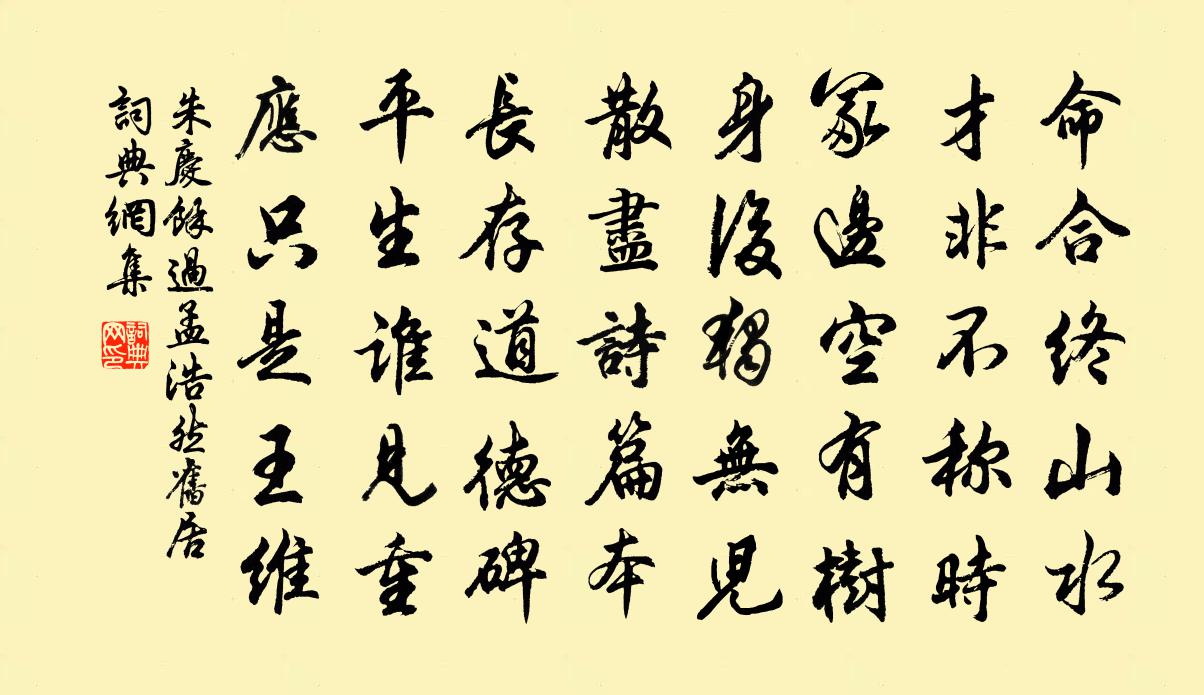 命合終山水
才非不称時
冢邊空有樹
身後獨無兒
散盡詩篇本
長存道德碑
平生誰見重
應只是王維
朱慶餘過孟浩然舊居
詞典網集
詞典网印